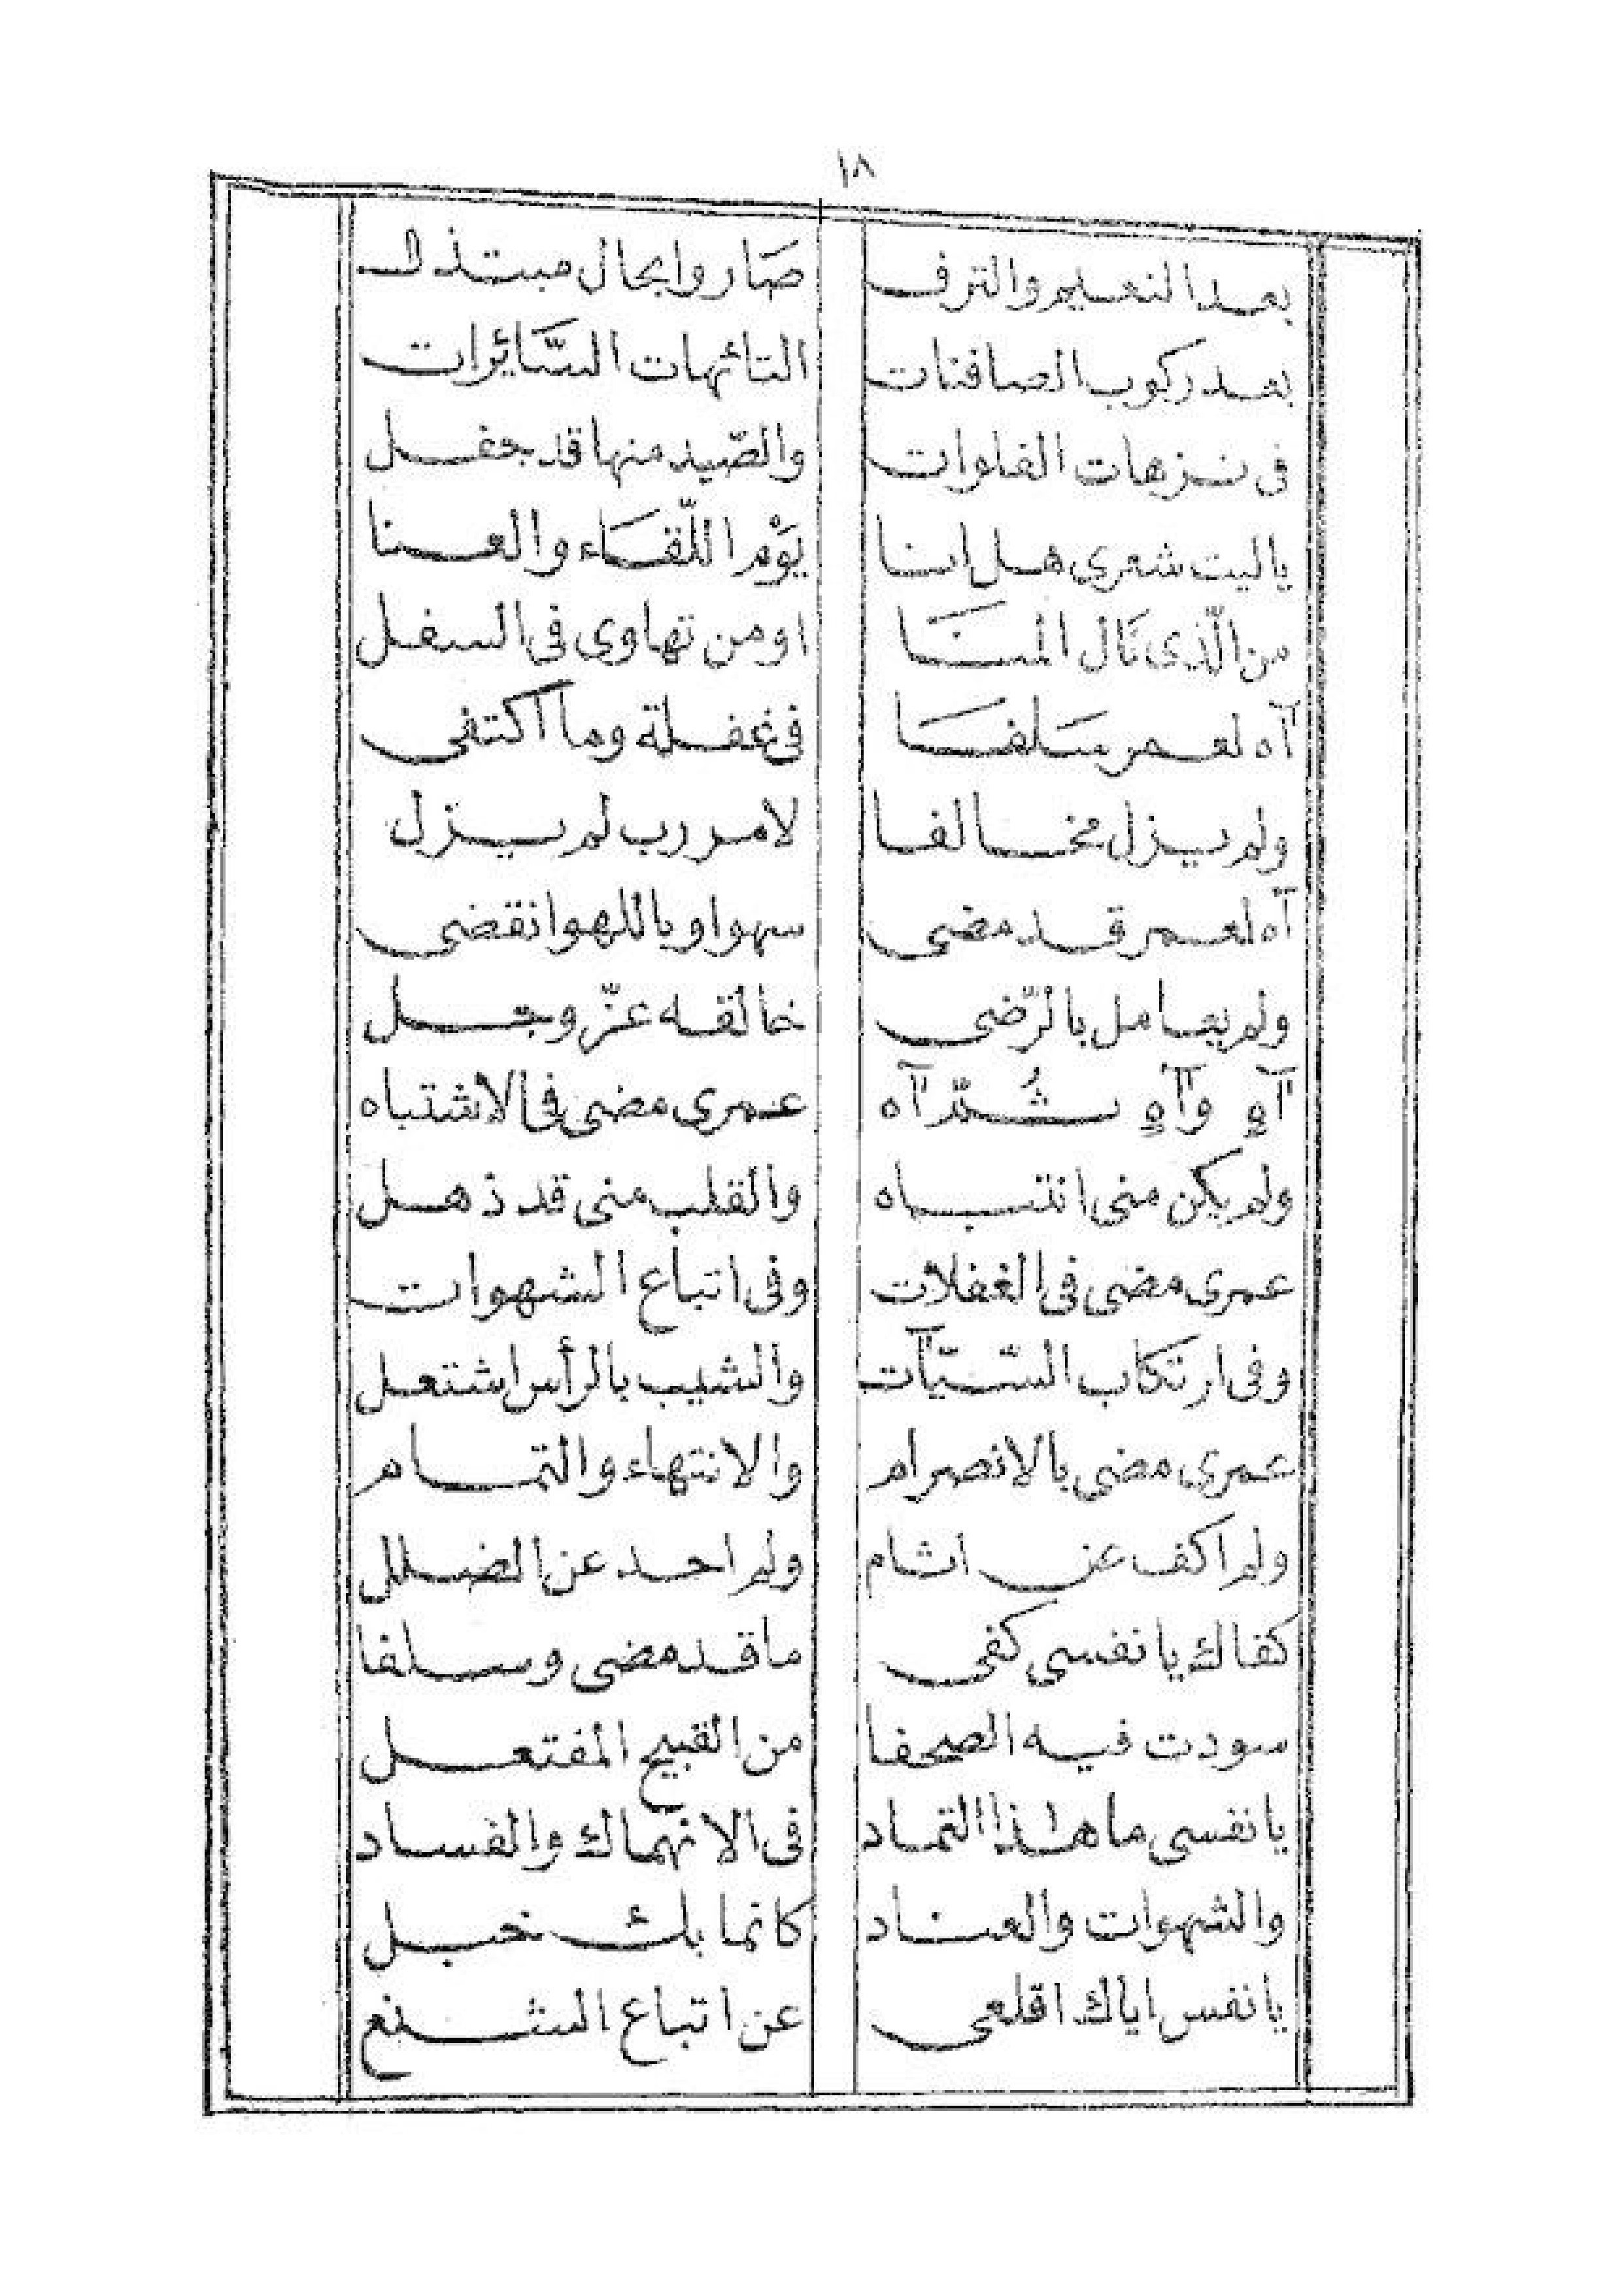 ١٨
بعد النعيم والترف صَاروا بحال مبتذل
بعد ركوب الصافنات التائهات السَّائرات
فى نزهات الفلوات والصّيد منها قد جفل
ياليت شعرى هل انا يَوْم اللّقَاء والعنا
من الّذى نَال المنَا او من تهاوى فى السفل
آه لعمر سَلفَا فى غفلة وما اكتفى
ولم يزل مخالفا لامر رب لم يزل
آه لعمر قد مضى سهوا وباللهو انقضى
ولم يعامل بالرّضى خالقه عزّ وجل
آهٍ وآهٍ ثُمّ آه عمرى مضى فى الاشتباه
ولم يكن منى انتباه والقلب منى قد ذهل
عمرى مضى فى الغفلات وفى اتباع الشهوات
وفى ارتكاب السّيّآت والشيب بالرأس اشتعل
عمرى مضى بالانصرام والانتهاء والتمام
ولم اكف عن اثام ولم احد عن الضلل
كفاك يا نفسى كفى ما قد مضى وسلفا
سودت فيه الصحفا من القبيح المفتعل
يا نفسى ما هذا التماد فى الانهماك والفساد
والشهوات والعناد كانما بك خبل
يا نفس اياك اقلعى عن اتباع الشنع